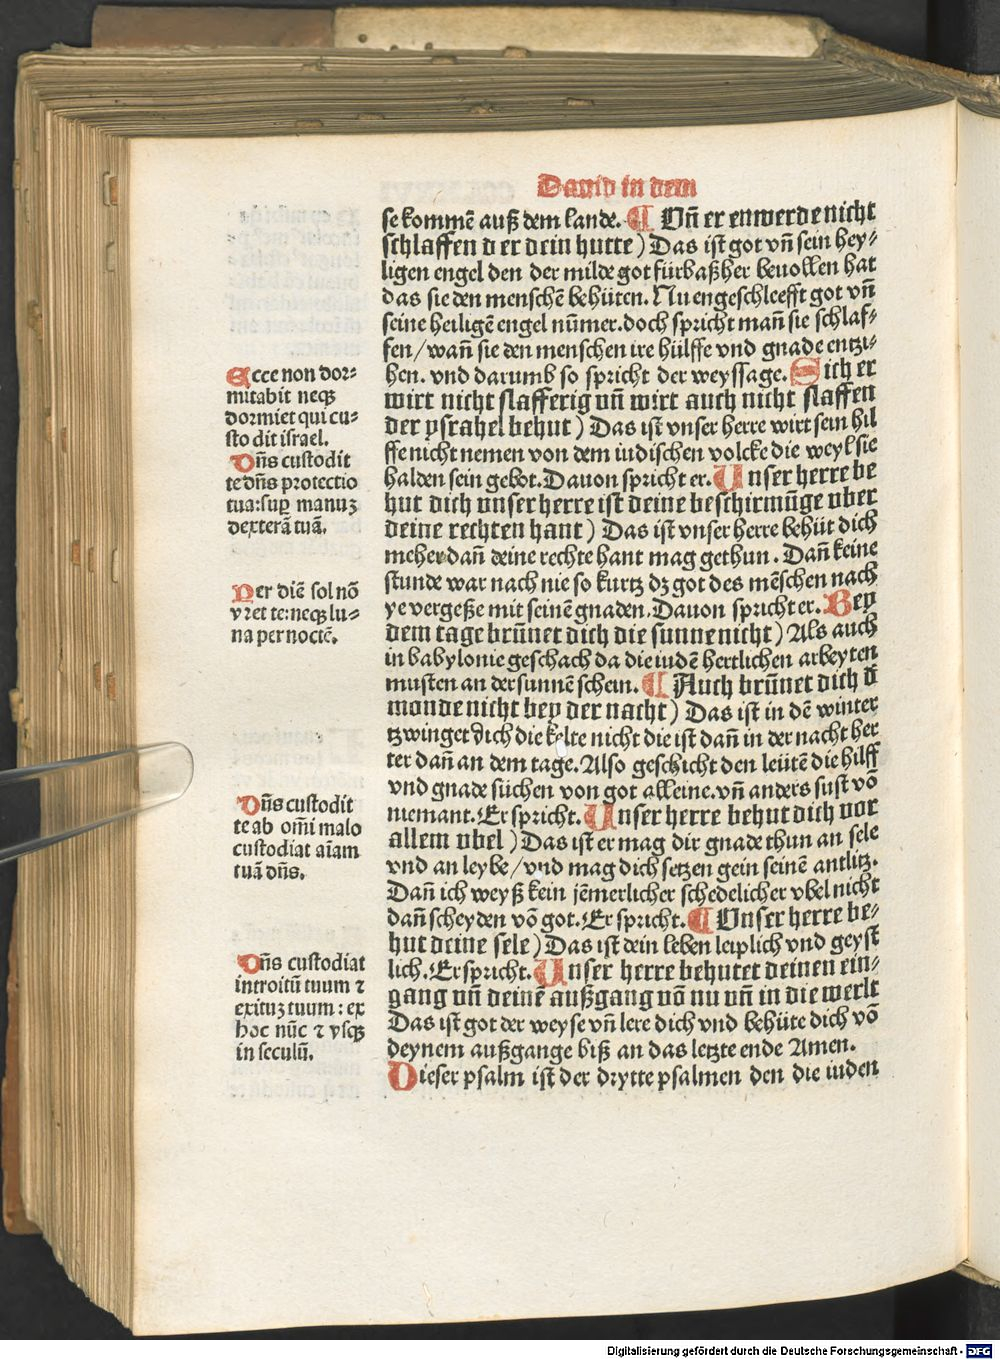 Dauid in dem
se kommē auß dem lande. ¶ Vn̄ er enwerde nicht
schlaffen der dein hutte) Das ist got vn̄ sein hey⸗
ligen engel den der milde got fürbaßher beuollen hat
das sie den menschē behüten. Nu engeschleefft got vn̄
seine heiligē engel nūmer. doch spricht man̄ sie schlaf⸗
fen/ wan̄ sie den menschen ire hülffe vnd gnade entzi⸗
hen. vnd darumb so spricht der weyssage. Sich er
wirt nicht slafferig vn̄ wirt auch nicht slaffen
der ysrahel behut) Das ist vnser herre wirt sein hil
ffe nicht nemen von dem iudischen volcke die weyl sie
halden sein gebot. Dauon spricht er. Unser herre be
hut dich vnser herre ist deine beschirmūge vber
deine rechten hant) Das ist vnser herre behüt dich
meher dan̄ deine rechte hant mag gethun. Dan̄ keine
stunde war nach nie so kurtz dz got des mēschen nach
ye vergeße mit seinē gnaden. Dauon spricht er. Bey
dem tage brūnet dich die sunne nicht) Als auch
in babylonie geschach da die iudē hertlichen arbeyten
musten an der sunnē schein. ¶ Auch brūnet dich d̄
monde nicht bey der nacht) Das ist in dē winter
tzwinget dich die kelte nicht die ist dan̄ in der nacht her
ter dan̄ an dem tage. Also geschicht den leütē die hilff
vnd gnade süchen von got alleine. vn̄ anders sust vō
niemant. Er spricht. Unser herre behut dich vor
allem vbel) Das ist er mag dir gnade thun an sele
vnd an leybe/ vnd mag dich setzen gein seinē antlitz.
Dan̄ ich weyß kein jēmerlicher schedelicher vbel nicht
dan̄ scheyden vō got. Er spricht. ¶ Vnser herre be⸗
hut deine sele) Das ist dein leben leiplich vnd geyst
lich. Er spricht. Unser herre behutet deinen ein⸗
gang vn̄ deinē außgang vō nu vn̄ in die werlt
Das ist got der weyse vn̄ lere dich vnd behüte dich vō
deynem außgange biß an das letzte ende Amen.
Dieser psalm ist der drytte psalmen den die iuden
Ecce non dor⸗
mitabit neqꝫ
dormiet qui cu⸗
sto dit israel.
Dn̄s custodit
te dn̄s protectio
tua: sup̱ manuꝫ
dexterā tuā.
Per diē sol nō
vret te: neqꝫ lu⸗
na per noctē.
Dn̄s custodit
te ab om̄i malo
custodiat aīam
tuā dn̄s.
Dn̄s custodiat
introitū tuum ⁊
exituꝫ tuum: ex
hoc nūc ⁊ vsqꝫ
in seculū.
Digitalisierung gefördert durch die Deutsche Forschungsgemeinschaft - DFG